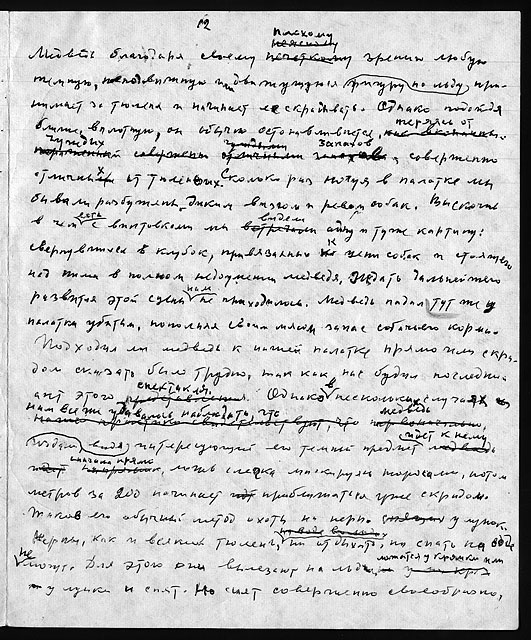 12
плохому
Медведь благодаря своему нечеткому зрению любую
темную, неподвижную или движущуюся фигуру на льду при-
нимает за тюленя и начинает ее скрадывать. Однако подойдя
ближе, вплотную, он обычно останавливается, теряясь от
чуждых запахов, совершенно
отличных от тюленьих. Сколько раз ночуя в палатке мы
бывали разбужены диким визгом и ревом собак. Выскочив
в чем есть с винтовками мы видели одну и ту же картину:
свернувшихся в клубок, привязанных к цепи собак и стоящего
над ними в полном недоумении медведя. Ждать дальнейшего
развития этой сцены нам не приходилось. Медведь падал тут же у
палатки убитым, пополняя своим мясом запас собачьего корма.
Подходил ли медведь к нашей палатке прямо или скра-
дом сказать было трудно, так как нас будил последний
акт этого спектакля. Однако в нескольких случаях
нам все же удавалось наблюдать, что медведь
видя интересующий его темный предмет идет к нему
сначала прямо, лишь слегка маскируясь торосами, потом
метров за 200 начинает приближаться уже скрадом.
Таков его обычный метод охоты на нерп у лунок.
Нерпы, как и всякий тюлень, ни отдыхать, ни спать на воде
не могут. Для этого они вылезают на льды, ложатся у кромки или
у лунки и спят. Но спят совершенно своеобразно,